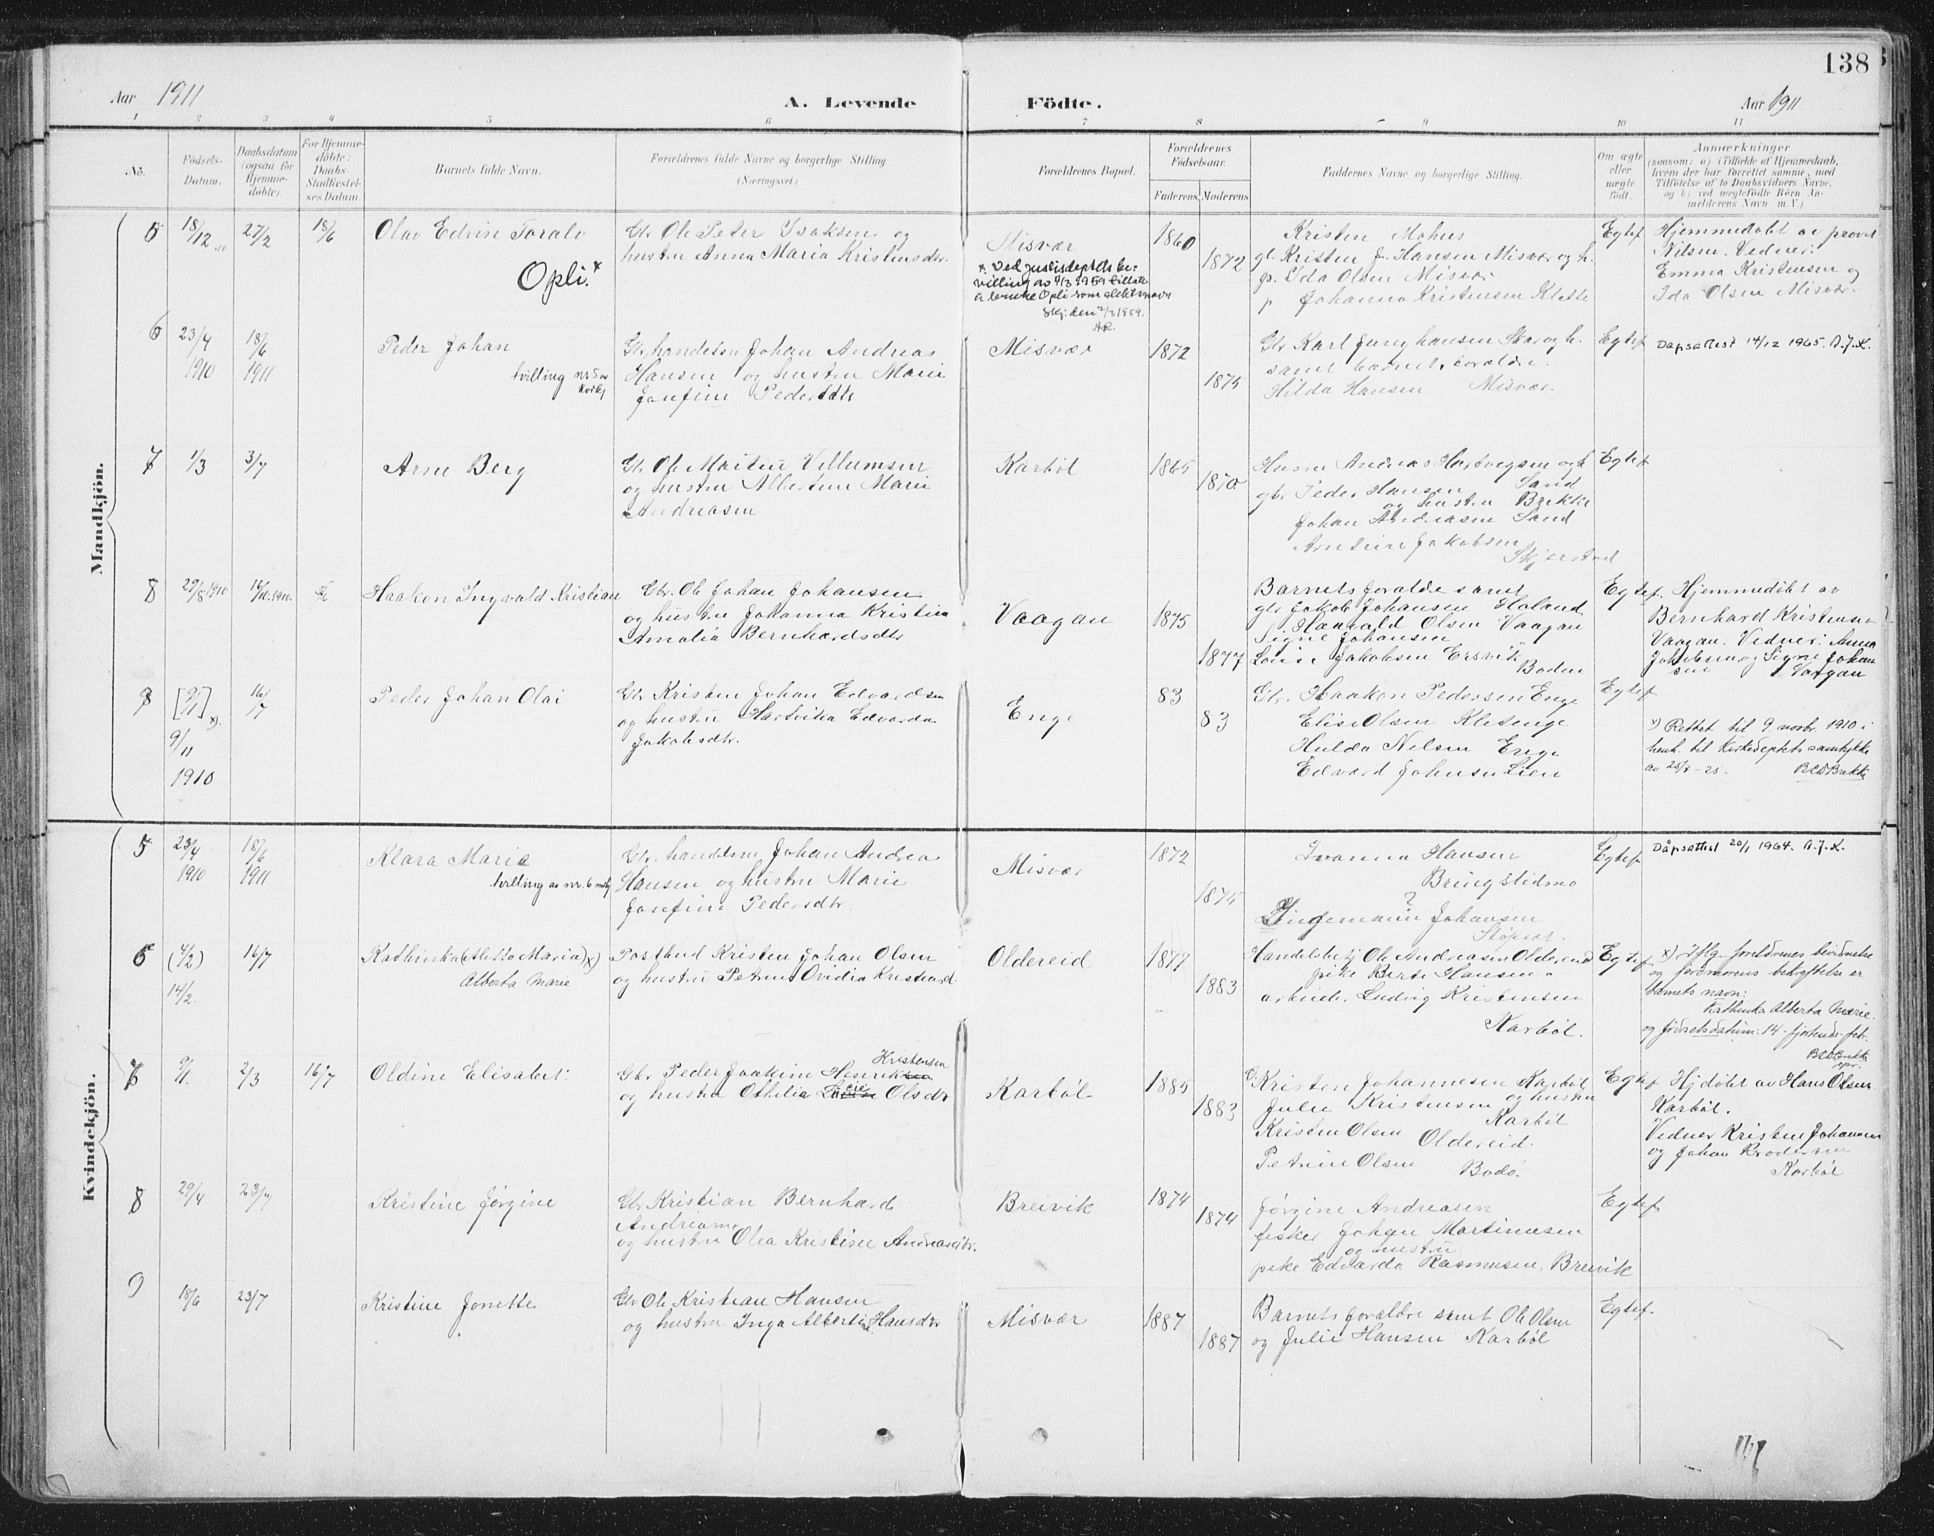 138
Aar 1911
A. Levende
Födte.
Aar 1911
1 2 3 4 5 6 7 8 9 10 11
No.
Födsels-
Datum.
Daabsdatum
(ogsaa for
Hjemme-
döbte).
For Hjemme-
döbte:
Daabs-
Stadfæstel-
ses Datum.
Barnets fulde Navn.
Forældrenes fulde Navne og borgerlige Stilling
(Næringsvei)
Forældrenes Bopæl.
Forældrenes
Födselsaar.
Faderens Moderens
Faddernes Navne og borgerlige Stilling.
Om ægte
eller
uægte
född.
Anmærkninger
(saasom: a) i Tilfælde af Hjemmedaab,
hvem der har forrettet samme, med
Tilföielse af to Daabsvidners Navne.
og b) ved uægtefödte Börn An-
melderens Navn m. V.)
Mandkjön.
5 18/12 27/2 18/6
Olav Edvin Toralv
Opli. x
Gbr Ole Peter Isaksen og
hustru Anna Maria Kristensdtr.
Misvær
x. Ved justisdeptets be-
villing av 4/3 1959 tillatt
å bruke Opli som slektsnavn
1860
1872
Kristen Mohus
gb. Kristen J. Hansen Misvær og h.
p. Ida Olsen Misvær
p Johanna Kristensen Klette
Egtef
Hjemmedøbt av provst
Nilsen. Vidner:
Emma Kristensen og
Ida Olsen Misvær.
6 23/4 1910 18/6 1911
Peder Johan
tvilling nr 5 av
kvikj
Gbr. handelsm Johan Andreas
Hansen og hustru Marie
Josefine Pedersdtr
Misvær
1872
1875
samt barnets foraldre.
Hilda Hansen Misvær.
Egtef
Dåpsattest 14/12 1965. A.J.K.
7 1/3 3/7
Arne Berg
Gbr Ole Martin Villumsen
og hustru Albertine Marie
Andreasen
Karbøl
1865
1870
Husm Andreas Hartvigsen og h
gbr. Peder Hansen Sand
og hustru Bekke
Johan Andreasen Sand
Jakobsen
Skjerstad
Egtef
8 29/8 1910 1910
Haakon Ingvald Kristian
Gbr. Ole Johan Johansen
og hustru Johanna Kristine
Amalia Bernhardsdtr
Vaagan
1875
1877
Barnets foraldre samt
gbr Jakob Johansen Haland
Haavald Olsen Vaagan
Signe Johansen
Jakobsen Ersvik
Bodin
Egtef.
Hjemmedøbt av
Bernhard Kristensen
Vaagan. Vidner: Anna
Jakobsen og Signe Johan
sen Vaagan
9 [9/1] x) 9/11 1910 16/7
Peder Johan Olai
Gbr Kristen Johan Edvardsen
og hustru Hartvika Edvarda
Jakobsdtr.
Enge
83
83
Gbr. Haakon Pedersen Enge
Elise Olsen Klesenge
Hulda Nilsen Enge
Edvard Johnsen Lien
Egtef
x) Rettet til 9. novbr. 1910 i
henh. til Kirkedeptets samtykke
av 25/8 - 25.
Kvindekjön.
5 23/4 1910 18/6 1911
Klara Marie
tvilling av nr. 6 mkj
Gbr. handelsm Johan Andrea
Hansen og hustru Marie
Josefine Pedersdtr.
Misvær
1872
1875
Ivanna Hansen
Bringslidmo
?
Lingemann Johansen
Egtef
Dåpsattest 20/1 1964. A.J.K.
6 (4/2) 14/2. 16/7
Kathinka (Alette Maria) x)
Alberta Marie
Postbud Kristen Johan Olsen
og hustru Petrine Ovidia Kristiansd.
Oldereid
1877
1883
Handelsbetj Ole Andreasen Oldereid
pike Berte Hansen
arbeider Ludvig Kristensen
Karbøl.
Egtef
x) Iflg. foreldrenes beretnelse
og formorens bekreftelse er
barnets navn:
Kathinka Alberta Marie
og fødselsdatum: 14. fjortende feb.
7 9/1. 2/3 16/7
Oldine Elisabet.
Kristensen
Gbr Peder Joakim Henriksen
og hustru Othilia Olsdtr
Karbøl
1885
1883
G. Kristen Johannesen Karbøl
og hustru
Julie Kristensen Karbøl
Kristen Olsen Oldereid.
Petrine Olsen Bodø.
Egtef
Hjdøbt av Hans Olsen
Karbøl.
Vidner Kristen Johannsen
og Johan Brodersen
Karbøl
8 29/4 23/7
Kristine Jørgine
Gbr Kristian Bernhard
Andreasen
og hustru Olea Kristine Andreasdtr.
Breivik
1874
1874
Jørgine Andreasen
fisker Johan Martinussen
og hustru
pike Edvarda Rasmussen. Breivik
Egtef
9 18/6 23/7
Kristine Jonette
Gbr Ole Kristian Hansen
og hustru Inga Albertine Hansdtr
Misvær
1887
1887
Barnets foraldre samt Ole Olsen
og Julie Hansen Karbøl
Egtef.